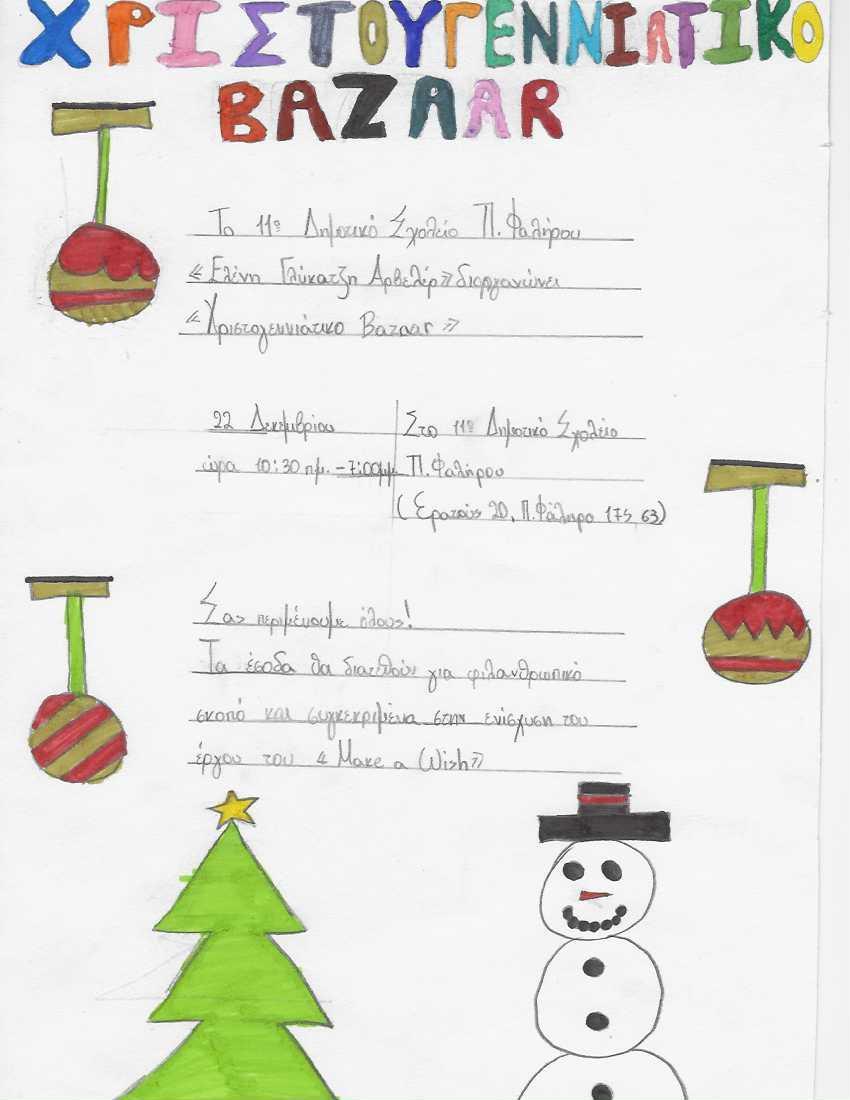 ΧΡΙΣΤΟΥΓΕΝΝΙΑΤΙΚΟ
BAZAAR
Το 11ο Δημοτικό Σχολείο Π. Φαλήρου
«Ελένη Γλύκατζη Αρβελέρ» διοργανώνει
«Χριστογεννιάτικο Bazaar»
22 Δεκεμβρίου
ώρα 10:30 πμ. - 7:00μμ
Στο 11ο Δημοτικό Σχολείο
Π. Φαλήρου
(Ερατούς 20, Π. Φάληρο 175 63)
Σας περιμένουμε όλους!
Τα έσοδα θα διατεθούν για φιλανθρωπικό
σκοπό και συγκεκριμένα στην ενίσχυση του
έργου του «Make a Wish»